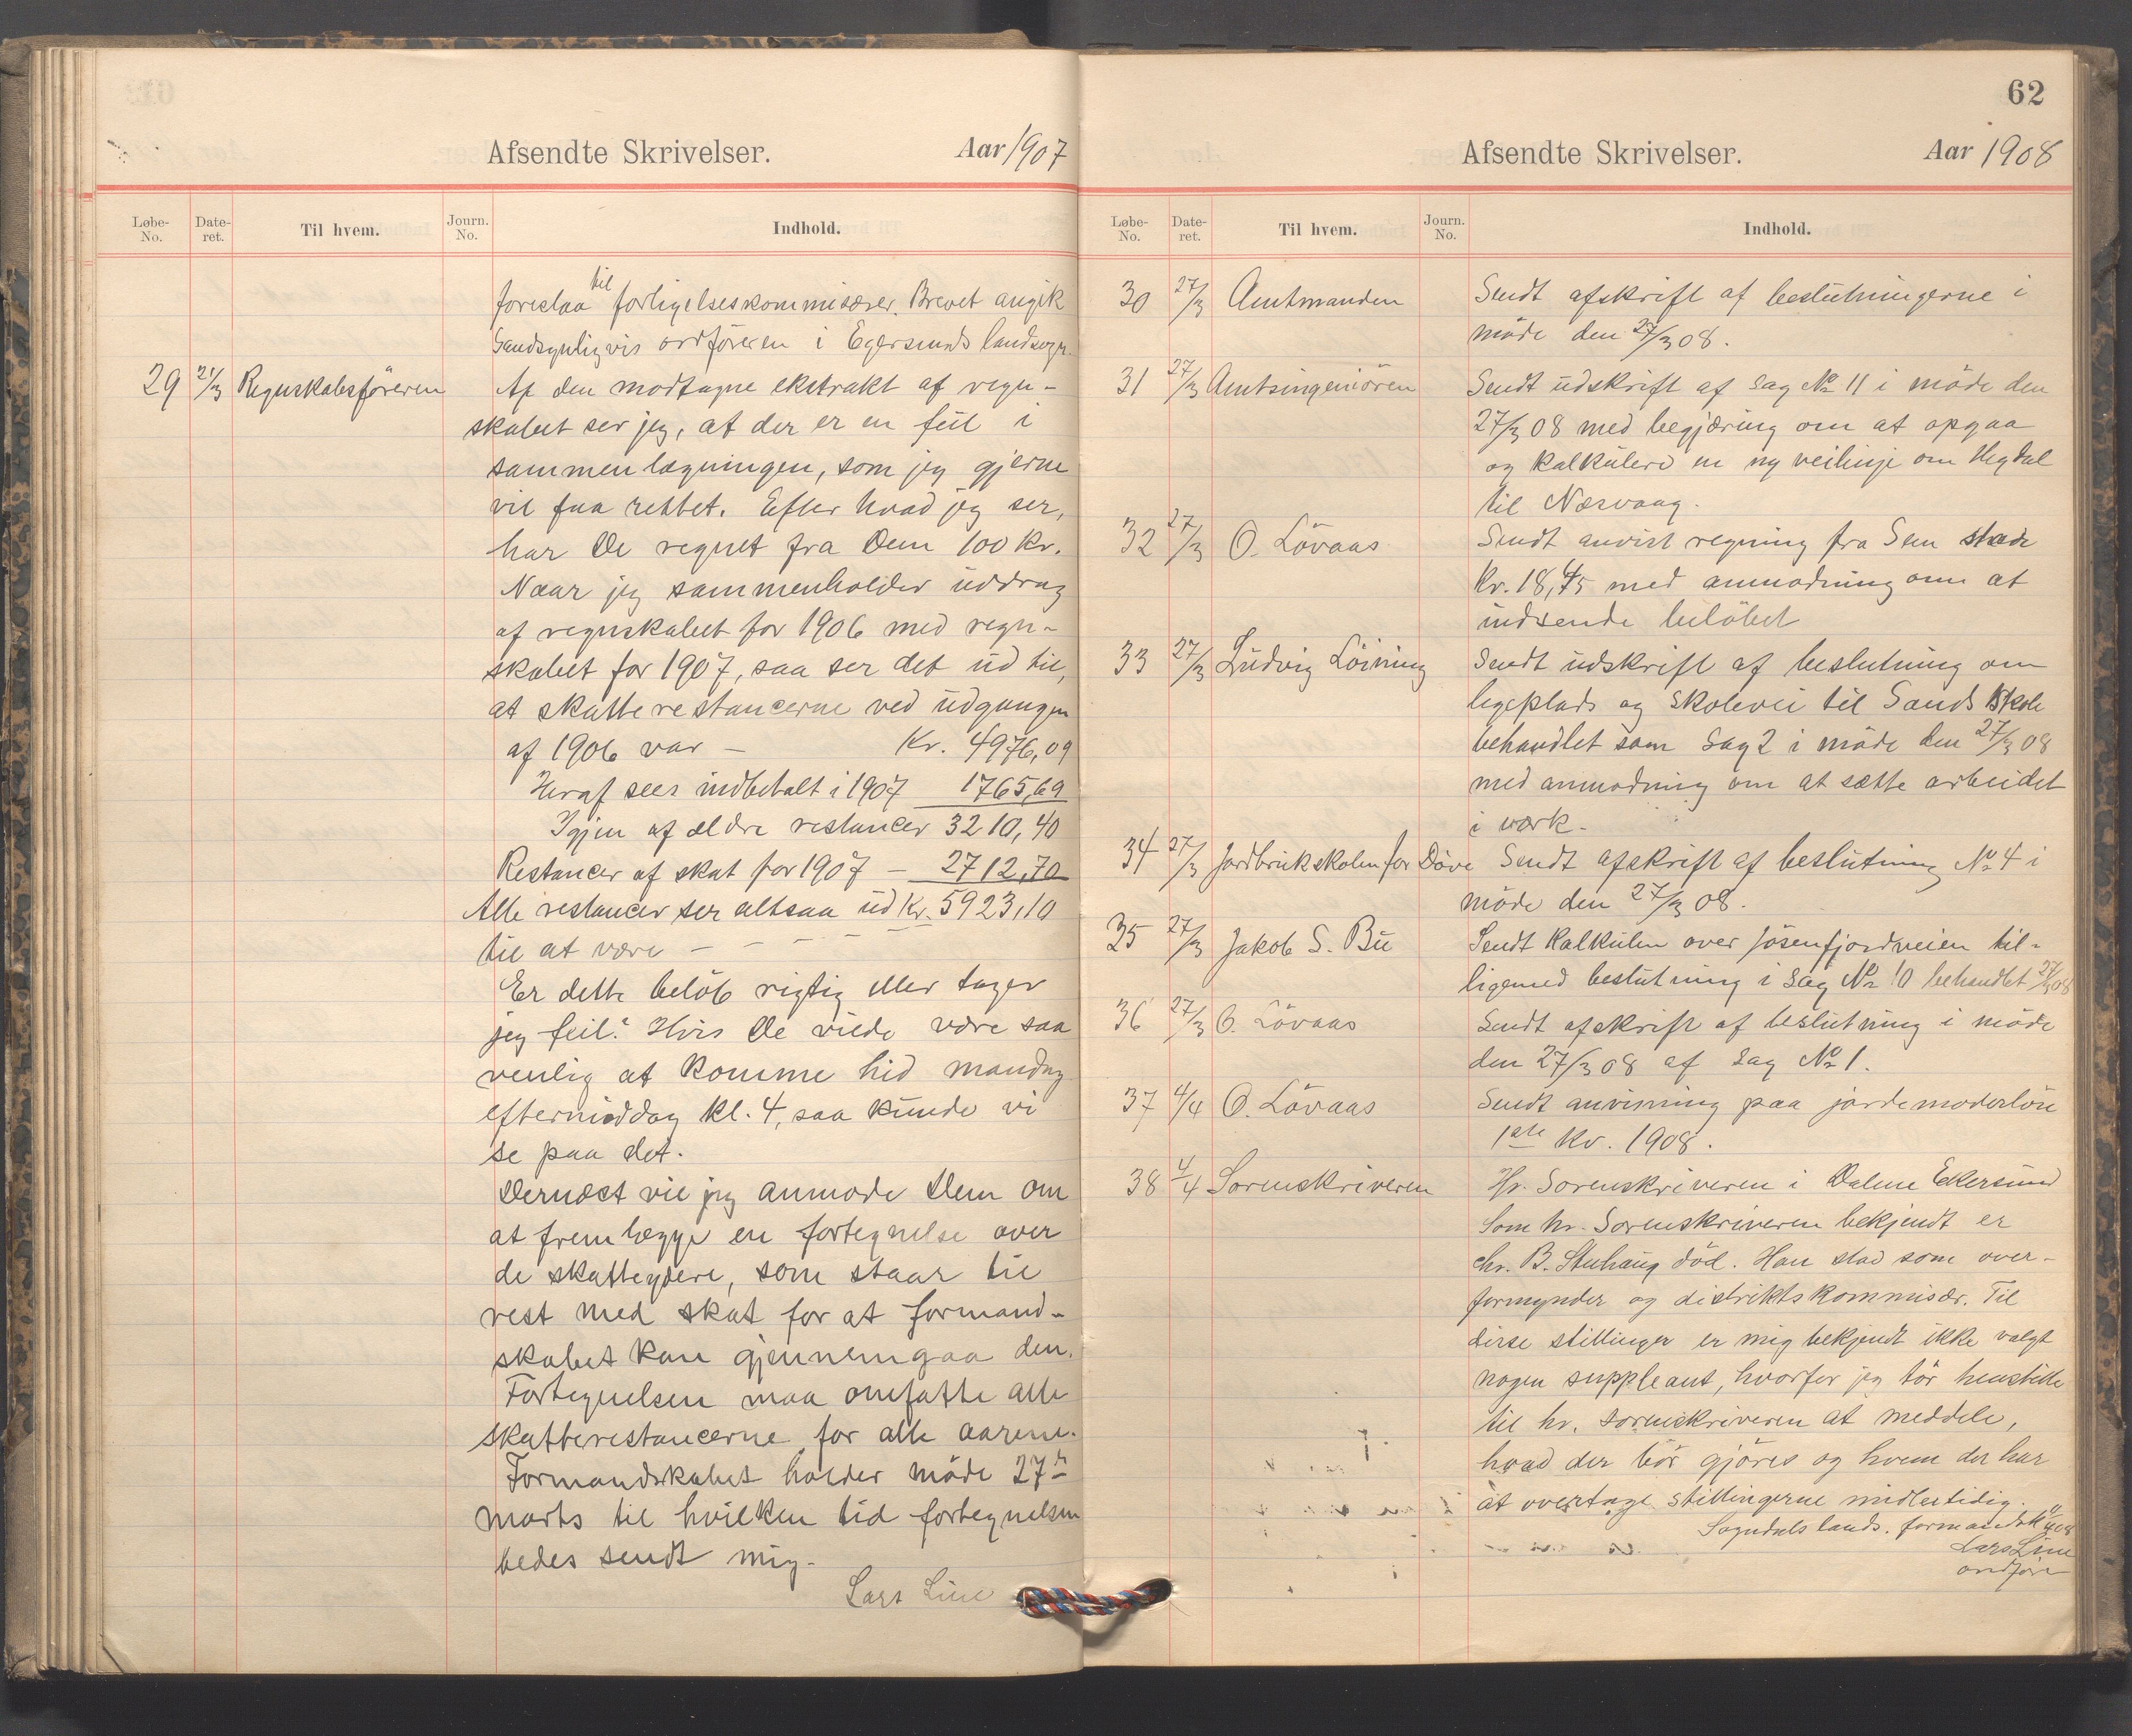 Afsendte Skrivelser. Aar 1907
Løbe-No. Date-ret. Til hvem. Journ. No. Indhold.
foreslaa til forligelseskommisærer. Brevet angik
Sandsynligvis ordföreren i Egersunds landsogn.
29 21/3 Regnskabsföreren Af den modtagne ekstrakt af regn-
skabet ser jeg, at der er en feil i
sammenlægningen, som jeg gjerne
vil faa rettet. Efter hvad jeg ser,
har De regnet fra Dem 100 kr.
Naar jeg sammenholder uddrag
af regnskabet for 1906 med regn-
skabet for 1907, saa ser det ud til,
at skatterestancerne ved udgangen
af 1906 var – Kr. 4976,09
Heraf sees indbetalt i 1907 1765,69
Igjen af ældre restancer 3210,40
Restancer af skat for 1907 – 2712,70
Alle restancer ser altsaa ud Kr. 5923,10
til at være – – – – –
Er dette belöb rigtig eller tager
jeg feil? Hvis De vilde være saa
venlig at komme hid mandag
eftermiddag kl. 4, saa kunde vi
se paa det.
Dernæst vil jeg anmode Dem om
at fremlægge en fortegnelse over
de skatteydere, som staar til
rest med skat for at formand-
skabet kan gjennemgaa den.
Fortegnelsen maa omfatte alle
skatterestancerne for alle aarene.
Formandskabet holder möde 27de
marts til hvilken tid fortegnelsen
bedes sendt mig.
Lars Liue
62
Afsendte Skrivelser. Aar 1908
Løbe-No. Date-ret. Til hvem. Journ. No. Indhold.
30 27/3 Amtmanden Sendt afskrift af beslutningerne i
möde den 27/3 08.
31 27/3 Amtsingeniören Sendt udskrift af sag No 11 i möde den
27/3 08 med begjæring om at opgaa
og kalkulere en ny veilinje om Hegdal
til Nærvaag.
32 27/3 O. Lövaas Sendt anvist regning fra Sem
Kr. 18,45 med anmodning om at
indsende belöbet
33 27/3 Ludvig Löining Sendt udskrift af beslutning om
legeplads og skolevei til Sands skole
behandlet som sag 2 i möde den 27/3 08
med anmodning om at sætte arbeidet
i værk.
34 27/3 Jordbrukskolen for Döve Sendt afskrift af beslutning No 4 i
möde den 27/3 08.
35 27/3 Jakob S. Bu Sendt kalkulen over Jösenfjordveien til-
ligemed beslutning i sag No 10 behandlet 27/3 08
36 27/3 O. Lövaas Sendt afskrift af beslutning i möde
den 27/3 08 af sag No 1.
37 4/4 O. Lövaas Sendt anvisning paa jordemoderlön
1ste kv. 1908.
38 4/4 Sorenskriveren Hr. Sorenskriveren i Dalene Ekersund
Som hr. Sorenskriveren bekjendt er
chr. B. Stuhaug död. Han stod som over-
formynder og distriktskommisær. Til
disse stillinger er mig bekjendt ikke valgt
nogen suppleant, hvorfor jeg tör henstille
til hr. sorenskriveren at meddele,
hvad der bör gjöres og hvem der har
at overtage stillingerne midlertidig.
Sogndals lands. formandsk 4/4 08
Lars Liue
ordförer